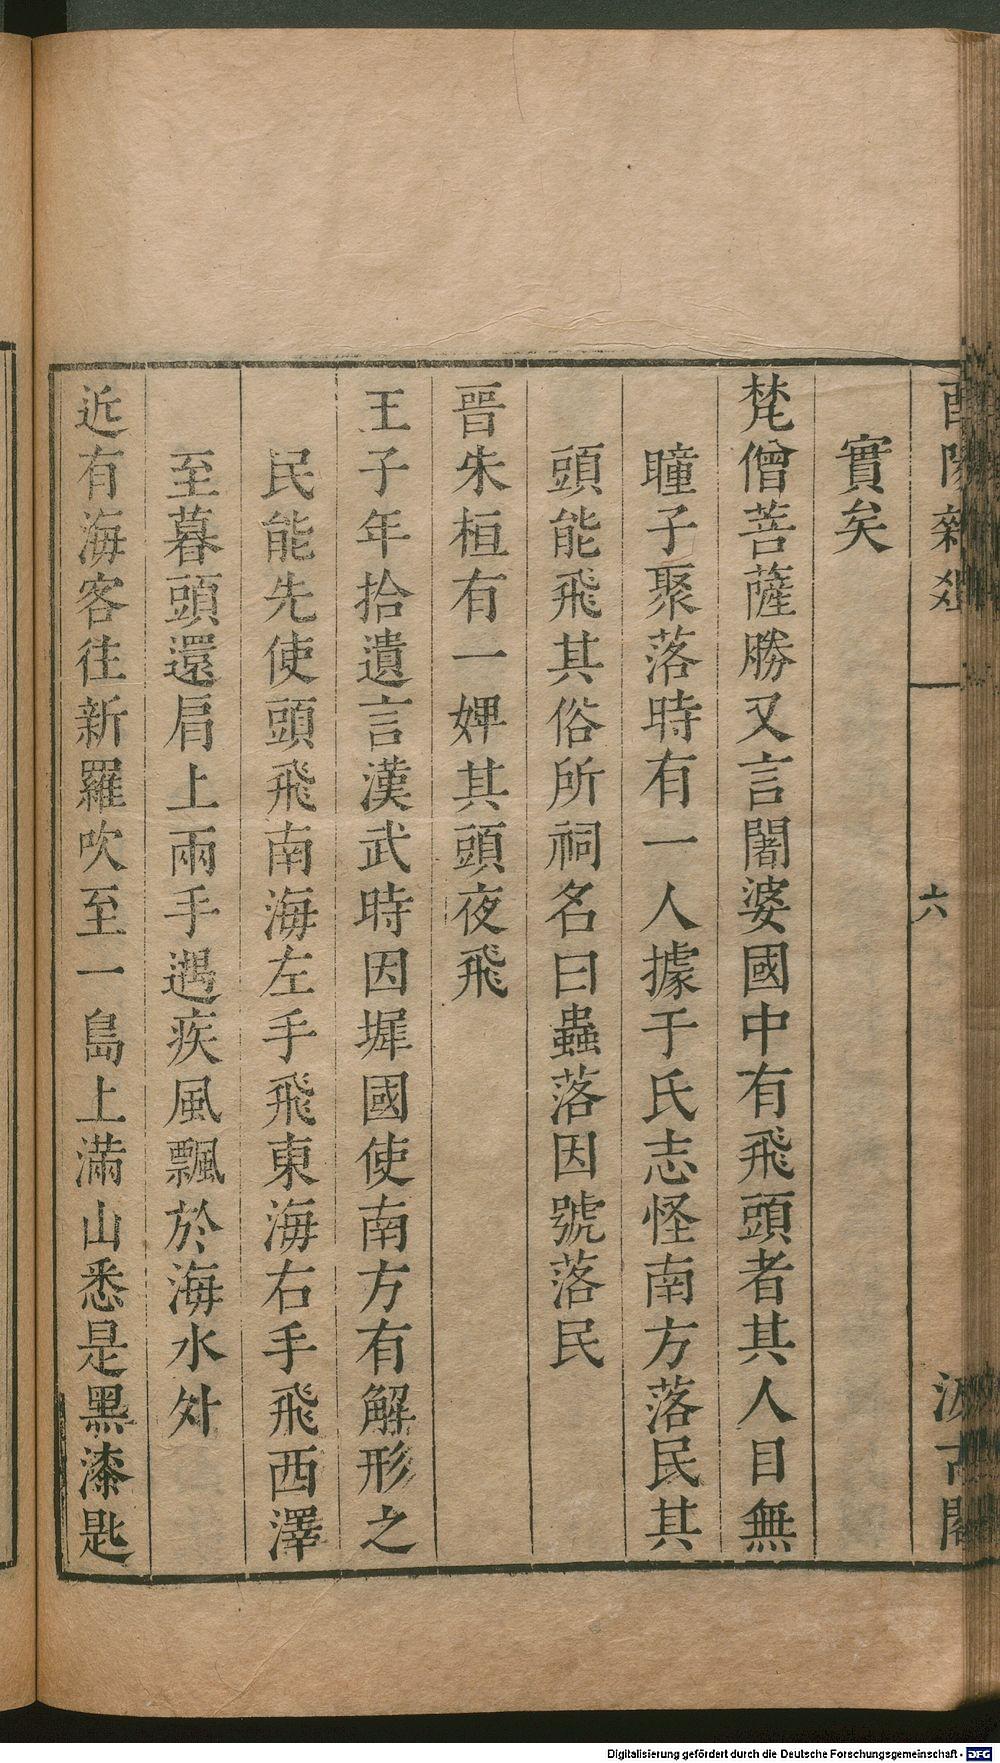 酉陽雜俎
六
汲古閣
實矣
梵僧菩薩勝又言闍婆國中有飛頭者其人目無
瞳子聚落時有一人據于氏志怪南方落民其
頭能飛其俗所祠名曰蟲落因號落民
晉朱桓有一婢其頭夜飛
王子年拾遺言漢武時因墀國使南方有解形之
民能先使頭飛南海左手飛東海右手飛西澤
至暮頭還肩上兩手遇疾風飄於海水外
近有海客往新羅吹至一島上滿山悉是黑漆匙
Digitalisierung gefördert durch die Deutsche Forschungsgemeinschaft - DFG